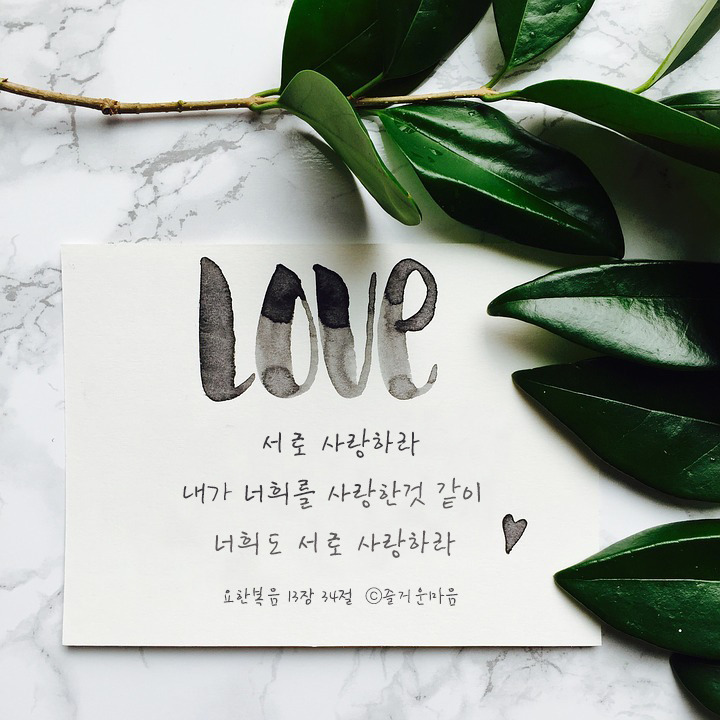 Love
서로 사랑하라
내가 너희를 사랑한것 같이
너희도 서로 사랑하라
요한복음 13장 34절 ⓒ즐거운마음